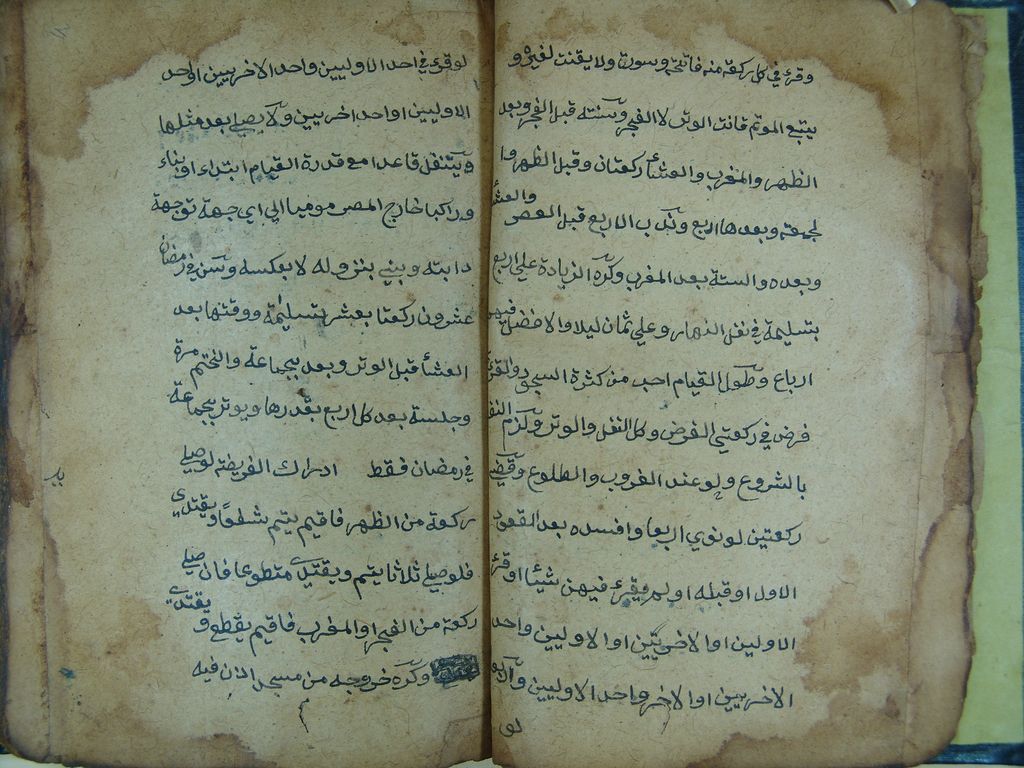 وقرئ في كل ركعة منه فاتحة وسورة ولا يقنت لغيره و
يتبع الموتم قانت الوتر لا الفجر وسنته قبل الفجر وبعد
الظهر والمغرب والعشأ ركعتان وقبل الظهر وا
لجمعة وبعدها اربع وندب الاربع قبل العصر والعشأ
وبعده والستة بعد المغرب وكره الزيادة علي اربع
بتسليمة في نفل النهار وعلي ثمان ليلا والافضل فيهن
ارباع وطول القيام احب من كثرة السجود والقرئة
فرض في ركعتي الفرض وكل النفل والوتر ولزم النفل
بالشروع ولو عند الغروب والطلوع وقضي
ركعتين لو نوي اربعا وافسده بعد القعود
الاول او قبله او لم يقرئ فيهن شيئا او قرئ
الاوليين او الاخريين او الاوليين واحد
الاخريين او الاخر واحد الاوليين واربعا
لو
لو قرئ في احد الاوليين واحد الاخريين او احد
الاوليين او احد اخريين ولا يصلي بعد مثلها
ويتنفل قاعدا مع قدرة القيام ابتداء او بناء
وراكبا خارج المصر موميا الي اي جهة توجهة
دابته وبني بنزوله لا بعكسه وسن في رمضان
عشرون ركعتا بعشر تسليمة ووقتها بعد
العشأ قبل الوتر وبعد بجماعة والختم مرة
وجلسة بعد كل اربع بقدرها ويوتر بجماعة
في رمضان فقط ادراك الفريضة لو صلي
ركعة من الظهر فاقيم يتم شفعا ويقتدي
فلو صلي ثلاثا يتم ويقتدي متطوعا فان صلي
ركعة من الفجر او المغرب فاقيم يقطع ويقتدي
وكره خروجه من مسجد اذن فيه